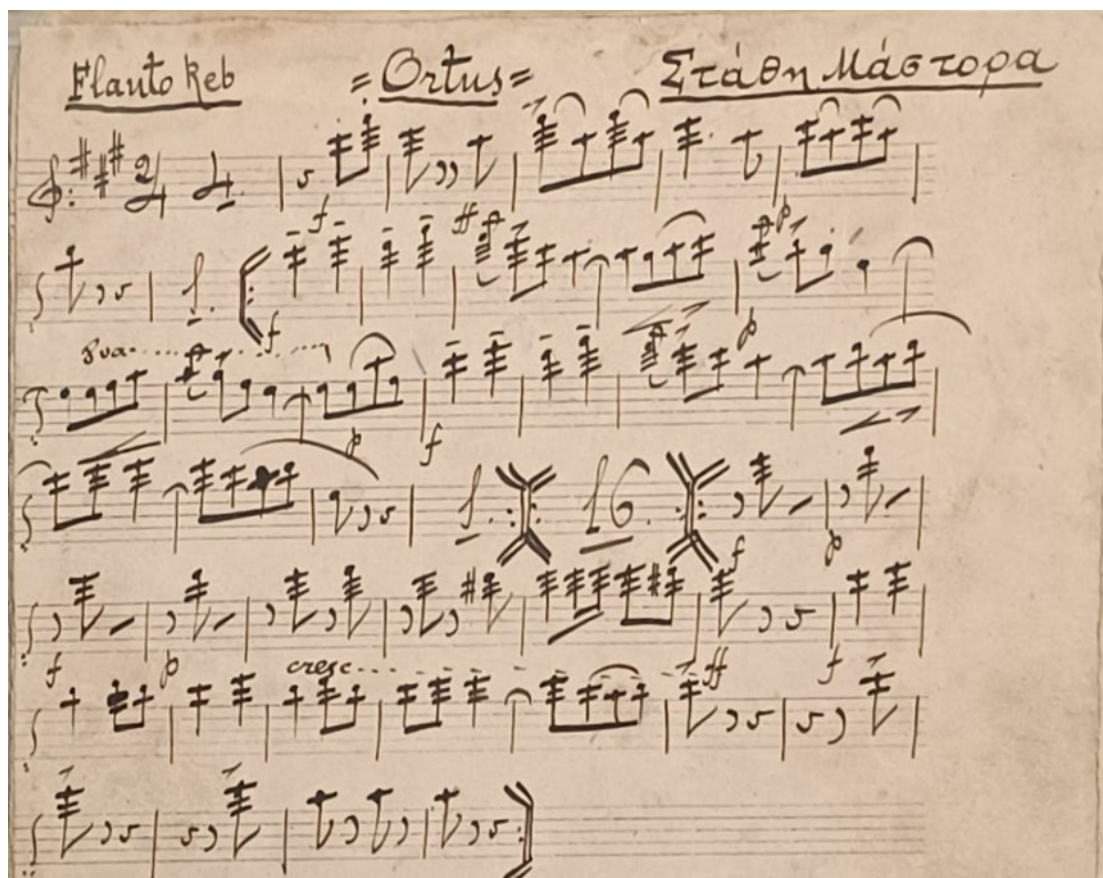 Flauto Reb =Ortus= Στάθη Μάστορα
2/4 4
f
ff p
1.
f
8va
p f p
1. 16.
f p
f p
cresc ff f